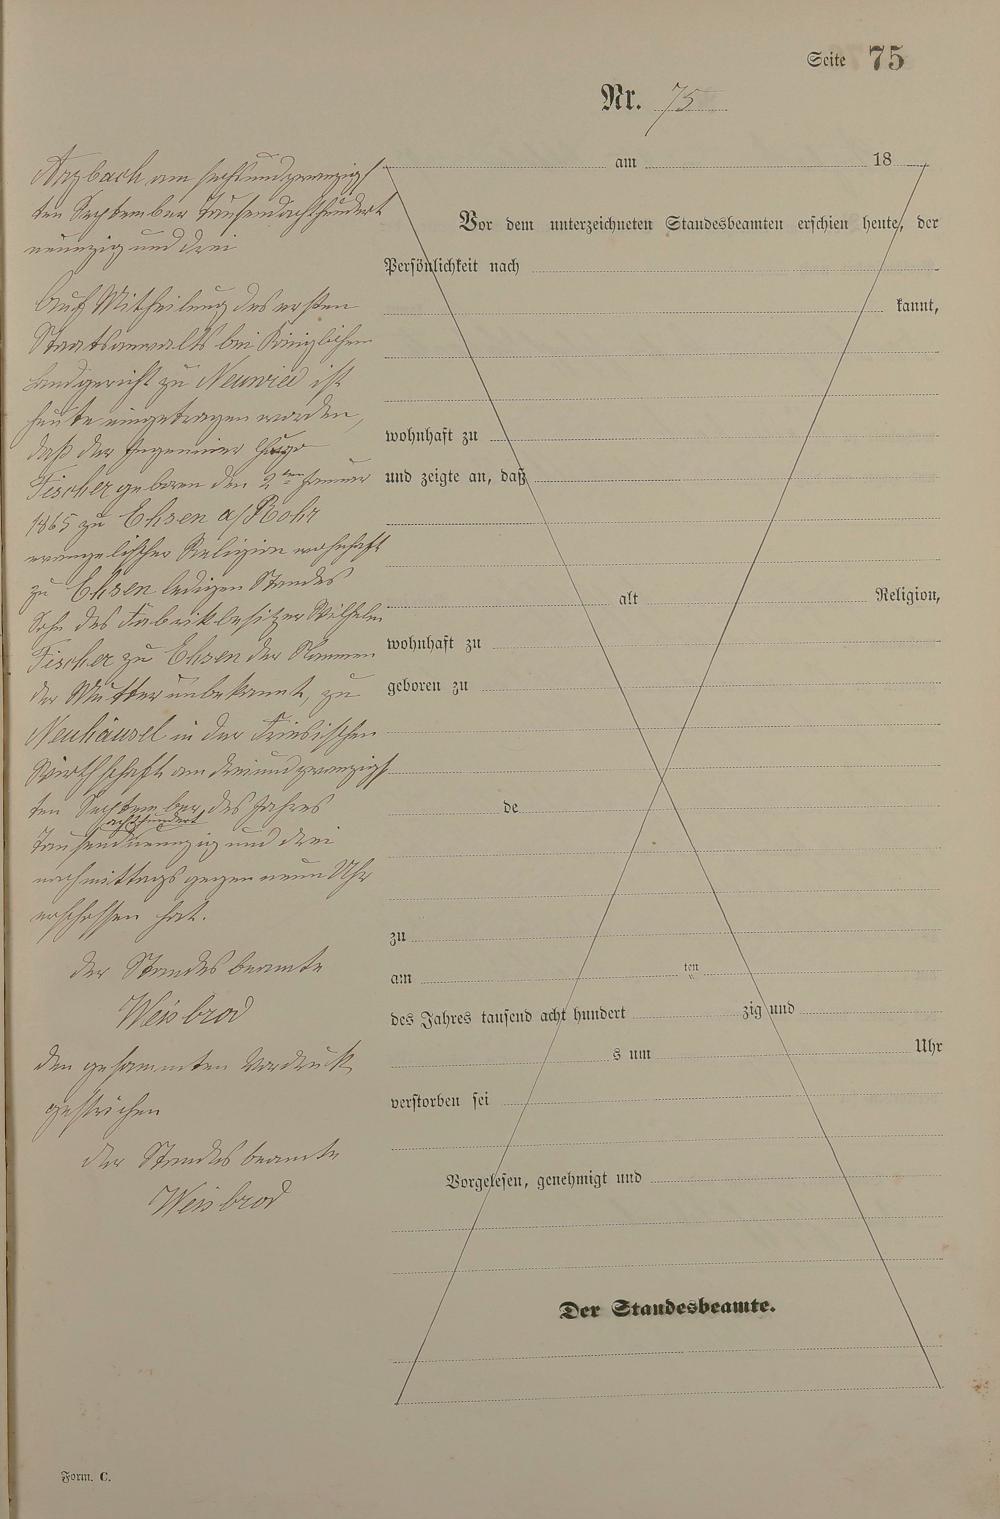 Seite 75
Nr. 75
Arzbach am sechsundzwanzigs
ten September Tausendachthundert
neunzig und drei
Auf Mittheilung des ersten
Staatsanwalts bei Königlichen
Landgericht zu Neuwied ist
heute eingetragen worden,
daß der Ingenieur Hugo
Fischer geboren den 2ten Januar
1865 zu Ehsen a/Rohr
evangelischer Religion wohnhaft
zu Ehsen ledigen Standes
Sohn des Fabrikbesitzer Wilhelm
Fischer zu Ehsen der Namen
der Mutter unbekannt, zu
Neuhäusel in der
Wirthschaft am dreiundzwanzigs
ten September des Jahres
achthundert
Tausendneunzig und drei
nachmittags gegen neun Uhr
erschossen hat.
der Standesbeamte
Weisbrod
den gesammten Vordruck
gestrichen
der Standesbeamte
Weisbrod
am 18
Vor dem unterzeichneten Standesbeamten erschien heute, der
Persönlichkeit nach
kannt,
wohnhaft zu
und zeigte an, daß
alt Religion,
wohnhaft zu
geboren zu
de
zu
am ten
des Jahres tausend acht hundert zig und
s um Uhr
verstorben sei
Vorgelesen, genehmigt und
Der Standesbeamte.
Form. C.